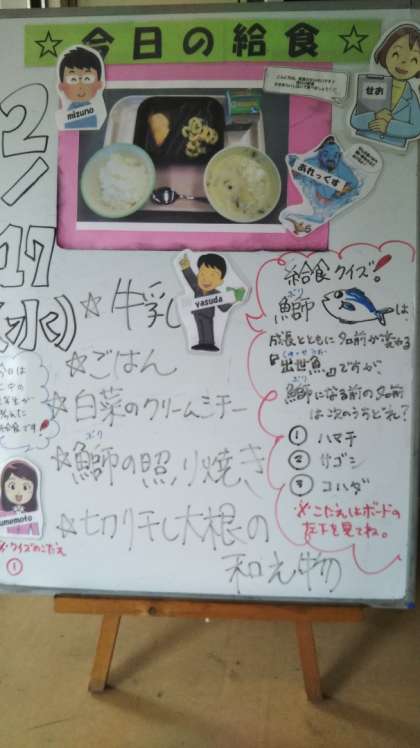 ☆今日の給食☆
mizuno
せお
あれっくす
2/17(水)
yasuda
☆牛乳
☆ごはん
☆白菜のクリームシチー
ぶり
☆鰤の照り焼き
☆切り干し大根の
和え物
給食クイズ!
ぶり
鰤は
成長とともに名前が変わる
しゅっせうお
『出世魚』ですが、
ぶり
鰤になる前の名前
は次のうちどれ?
① ハマチ
② サゴシ
③ コハダ
※こたえはボードの
左下を見てね。
今日は
給食です!
umemoto
※クイズのこたえ
①